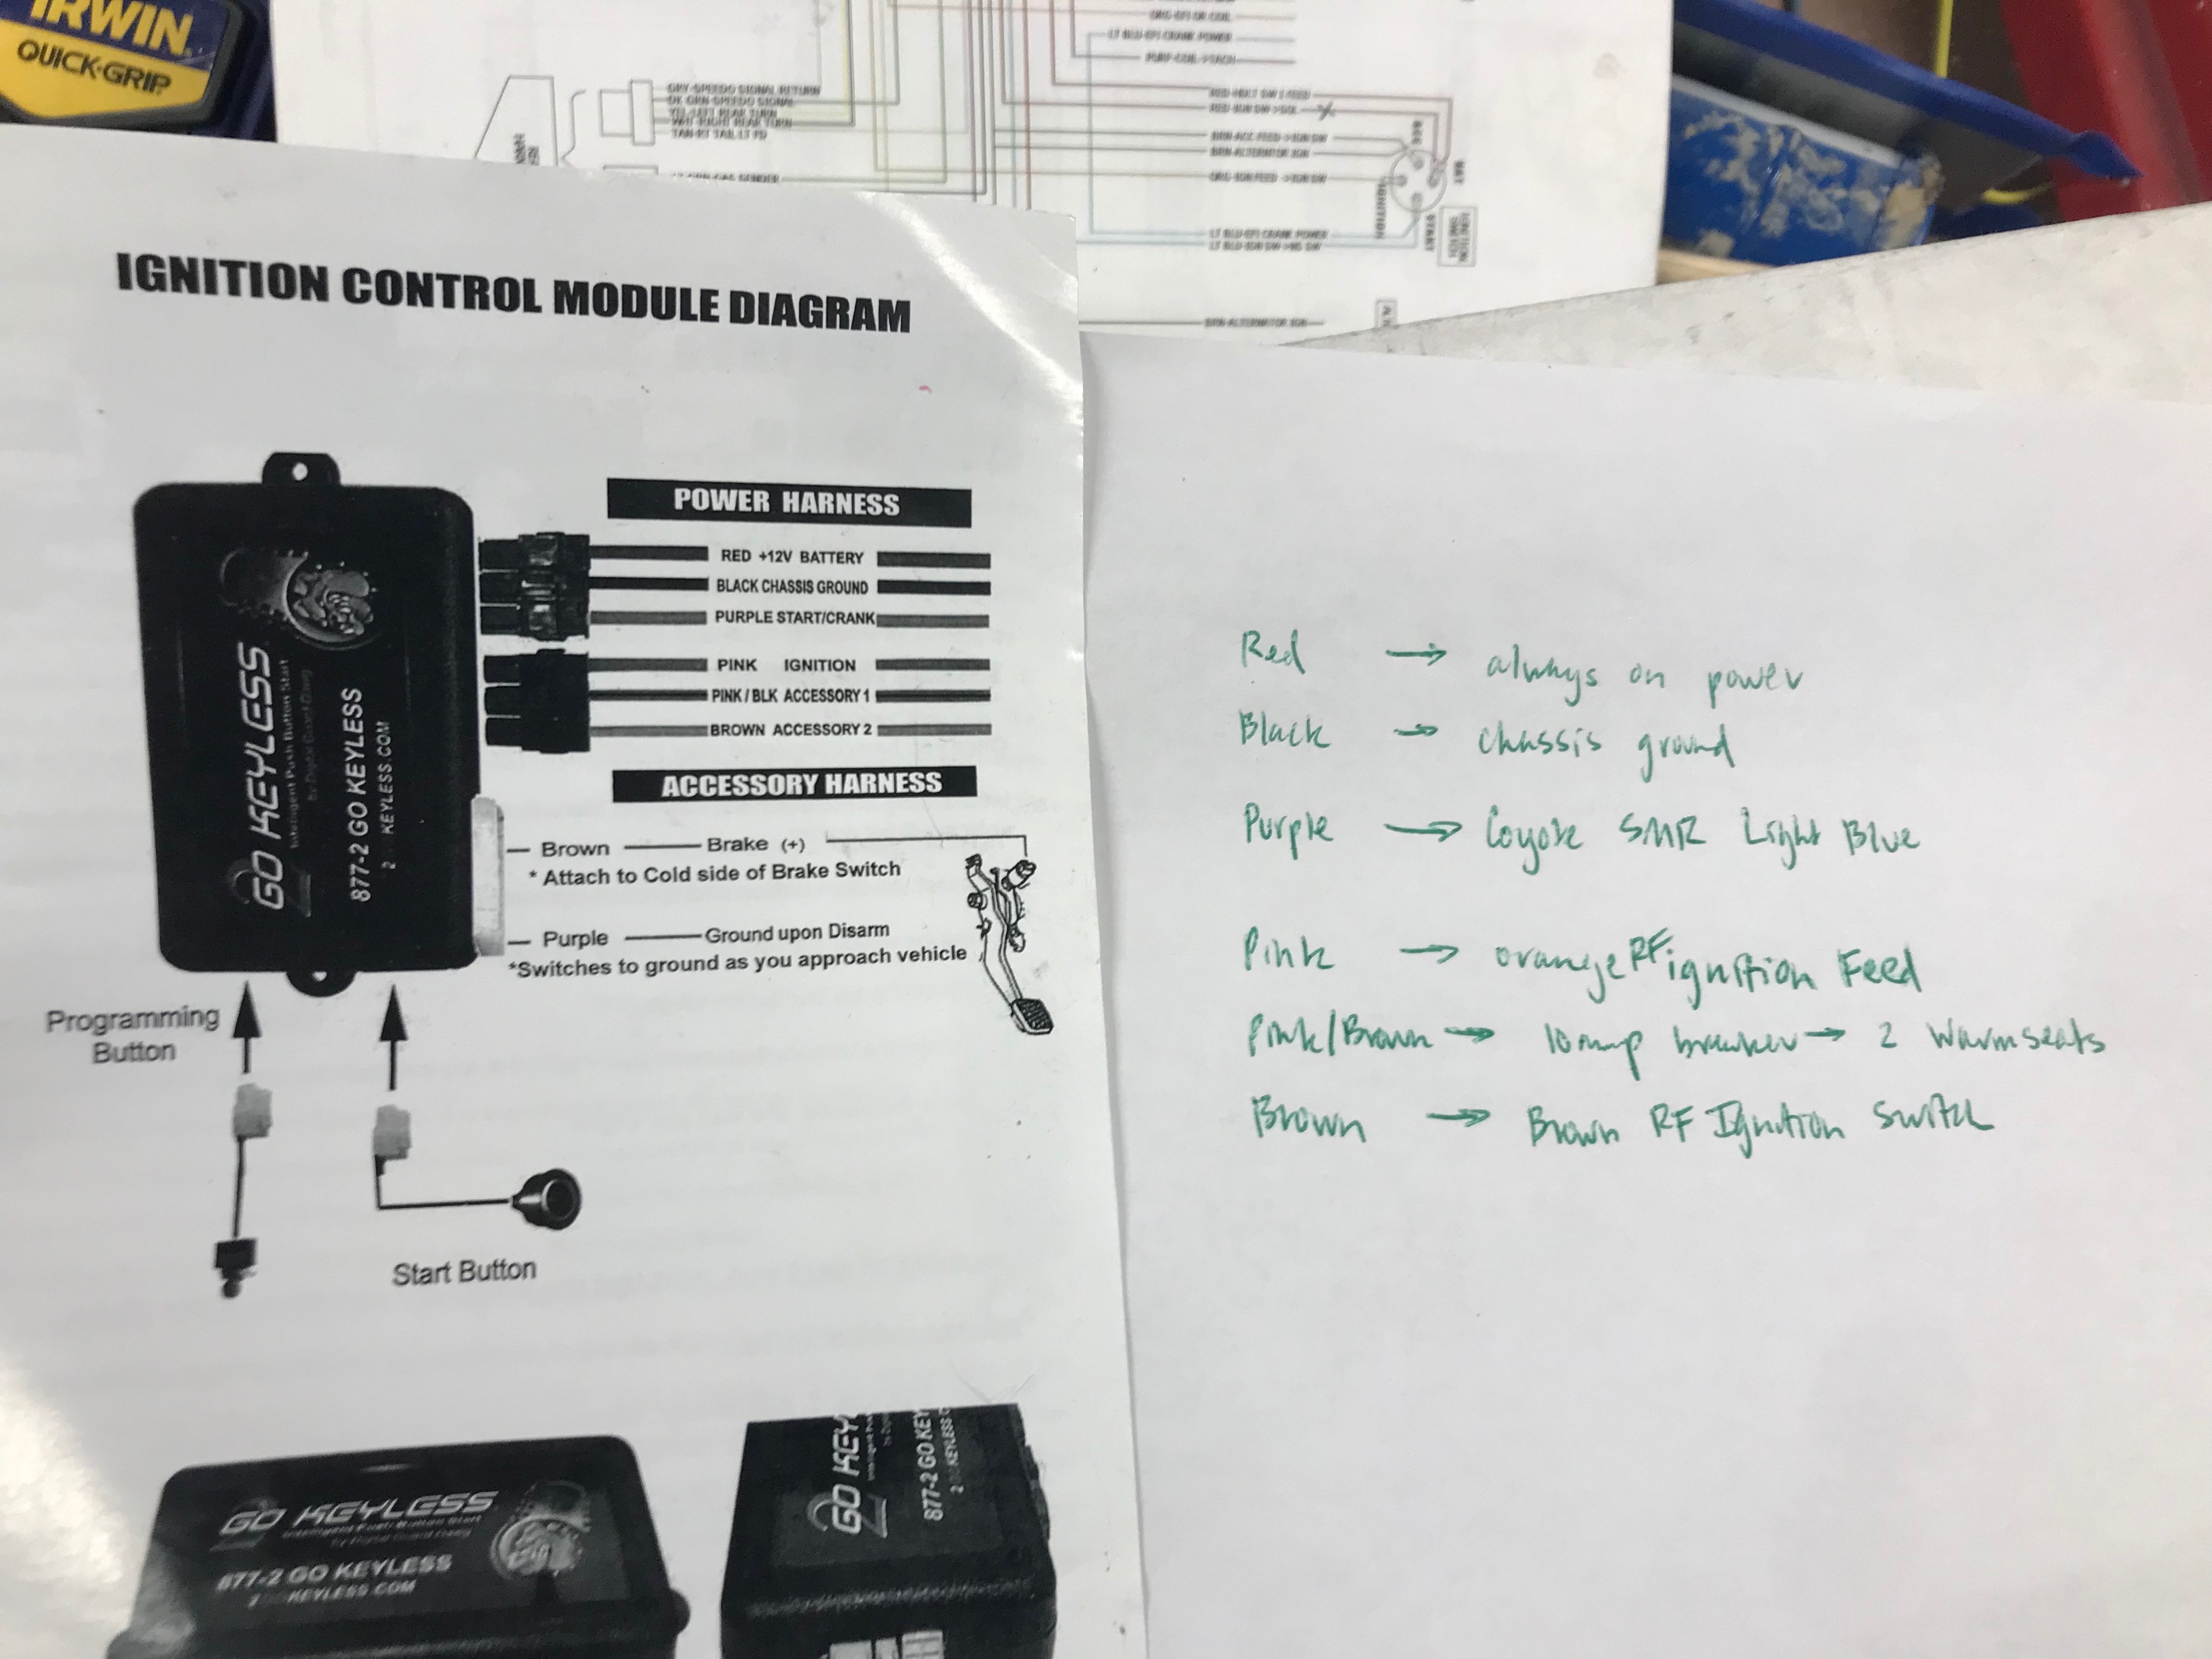 IRWIN
QUICK-GRIP
ORG-EFI OR COIL
LT BLU-EFI CRANK POWER
PURP-COIL->TACH
GRY-SPEEDO SIGNAL RETURN
DK GRN-SPEEDO SIGNAL
YEL-LEFT REAR TURN
WHT-RIGHT REAR TURN
TAN-RT TAIL LT FD
LT GRN-GAS SENDER
RED-IGN SW->SOL
BRN-ACC FEED->IGN SW
BRN-ALTERNATOR IGN
ORG-IGN FEED->IGN SW
LT BLU-EFI CRANK POWER
LT BLU-IGN SW->NS SW
ACC
BAT
IGNITION
START
IGNITION
SWITCH
BRN-ALTERNATOR IGN
IGNITION CONTROL MODULE DIAGRAM
POWER HARNESS
RED +12V BATTERY
BLACK CHASSIS GROUND
PURPLE START/CRANK
PINK IGNITION
PINK / BLK ACCESSORY 1
BROWN ACCESSORY 2
ACCESSORY HARNESS
Brown Brake (+)
* Attach to Cold side of Brake Switch
Purple Ground upon Disarm
*Switches to ground as you approach vehicle
GO KEYLESS
Intelligent Push Button Start
877-2 GO KEYLESS
2 KEYLESS.COM
Programming
Button
Start Button
GO KEYLESS
Intelligent Push Button Start
877-2 GO KEYLESS
KEYLESS.COM
GO KEY
877-2 GO KEY
2 KEYLESS
Red → always on power
Black → chassis ground
Purple → Coyote SMR Light Blue
Pink → orange RF ignition Feed
Pink/Brown → 10 amp breaker → 2 Warmseats
Brown → Brown RF Ignition Switch